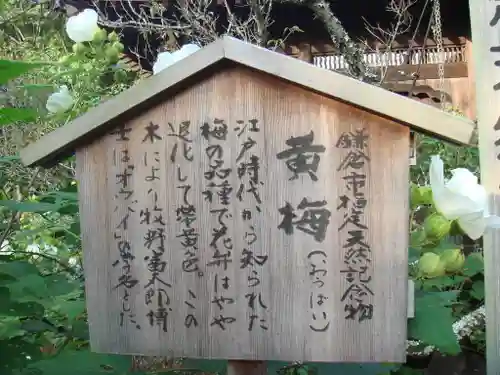 鎌倉市指定天然記念物
黄梅
（おうばい）
江戸時代から知られた
梅の品種で花弁はやや
退化して紫黄色。この
木により牧野富太郎博
士はオウバイの学名とした。